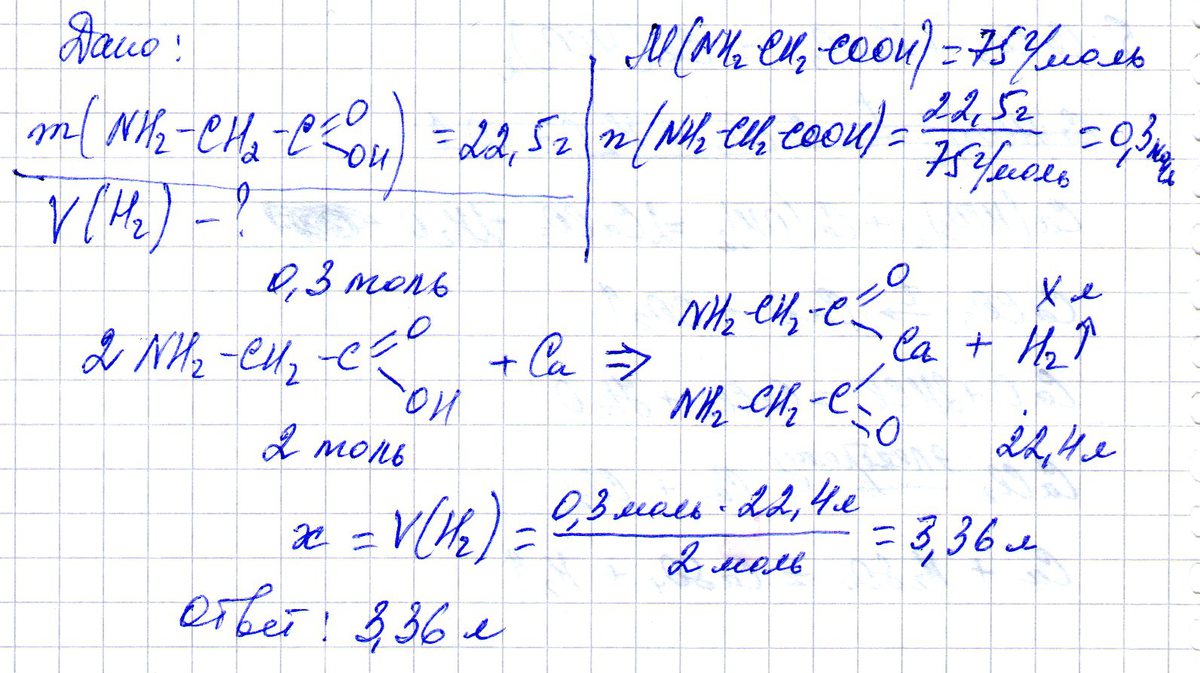 Дано:
m(NH₂-CH₂-C=O OH) = 22,5г
V(H₂) - ?
M(NH₂-CH₂-COOH) = 75г/моль
n(NH₂-CH₂-COOH) = 22,5г / 75г/моль = 0,3моль
0,3 моль
x л
2 NH₂-CH₂-C=O OH + Ca ⇒ NH₂-CH₂-C=O Ca NH₂-CH₂-C=O + H₂↑
2 моль
22,4л
x = V(H₂) = 0,3моль · 22,4л / 2 моль = 3,36 л
Ответ: 3,36 л